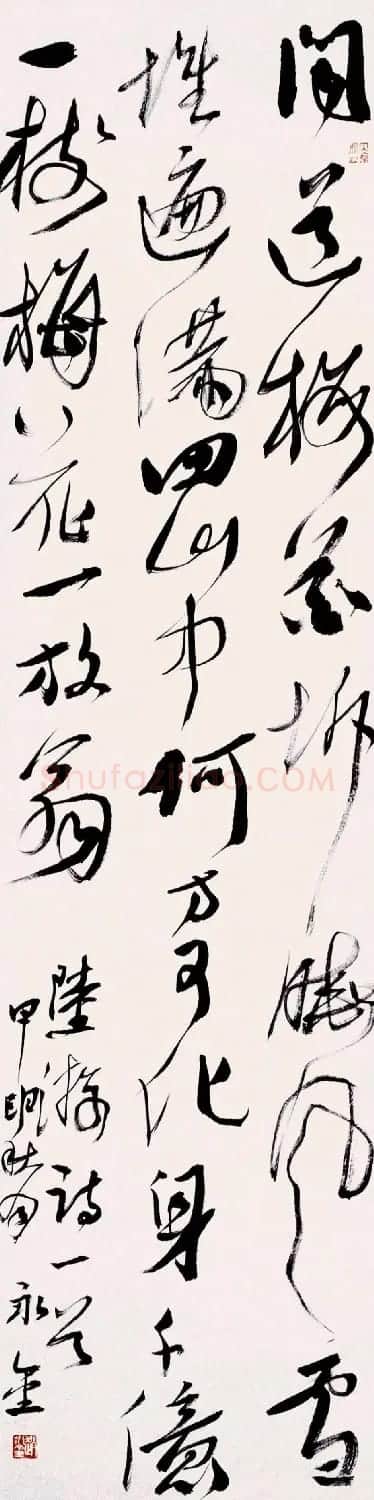 聞道梅花坼曉風雪
堆遍滿四山中何方可化身千億
一樹梅花一放翁
陸游詩一首
甲 秋月 永金